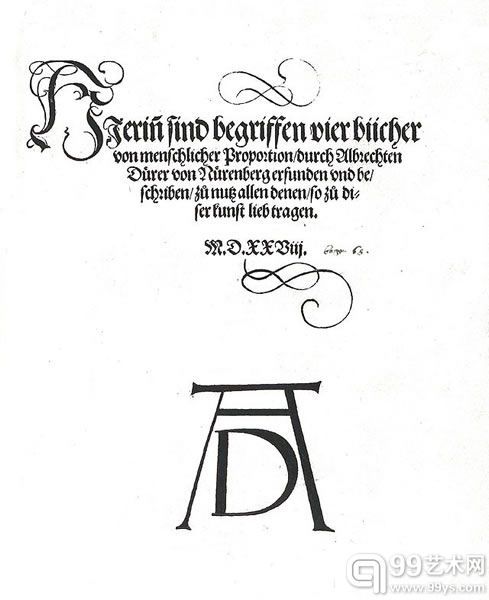 HJeriñ sind begriffen vier bücher
von menschlicher Proportion/durch Albrechten
Dürer von Nürenberg erfunden vnd be/
schriben/zů nutz allen denen/so zů di-
ser kunst lieb tragen.
M.D.XXViij.
AD
99艺术网
www.99ys.com